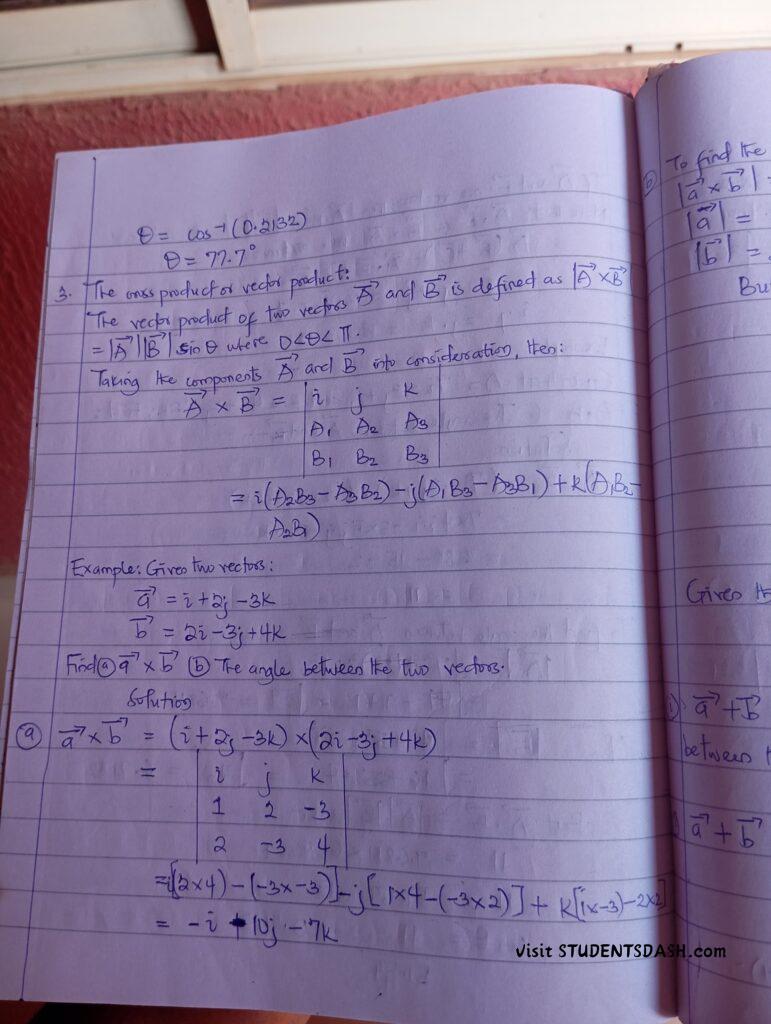 θ = cos⁻¹(0.2132)
θ = 77.7°
3. The cross product or vector product:
The vector product of two vectors A⃗ and B⃗ is defined as |A⃗ × B⃗|
= |A⃗||B⃗| sin θ where 0<θ<π.
Taking the components A⃗ and B⃗ into consideration, then:
A⃗ × B⃗ = | i j k |
| A₁ A₂ A₃ |
| B₁ B₂ B₃ |
= i(A₂B₃ − A₃B₂) − j(A₁B₃ − A₃B₁) + k(A₁B₂ −
A₂B₁)
Example: Given two vectors:
a⃗ = i + 2j − 3k
b⃗ = 2i − 3j + 4k
Find (a) a⃗ × b⃗ (b) The angle between the two vectors.
Solution
(a) a⃗ × b⃗ = (i + 2j − 3k) × (2i − 3j + 4k)
= | i j k |
| 1 2 −3 |
| 2 −3 4 |
= i[(2×4) − (−3×−3)] − j[1×4 − (−3×2)] + k[(1×−3) − 2×2]
= −i + 10j − 7k
Visit STUDENTSDASH.com
To find the
|a⃗ × b⃗|
|a⃗| =
|b⃗| =
Bu
Given
a⃗ + b⃗
between
a⃗ + b⃗